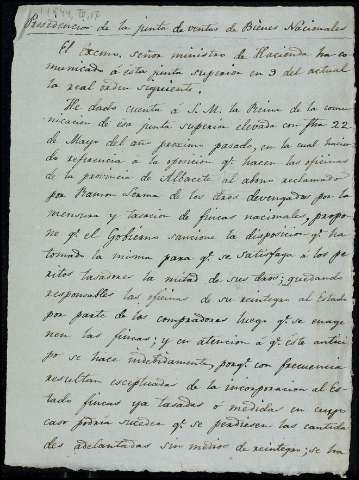 1844, IV, 17
Presidencia de la junta de ventas de Bienes Nacionales
El Excmo. señor ministro de Hacienda ha co-
municado á esta junta superior en 3 del actual
la real orden siguiente.
He dado cuenta á S. M. la Reina de la comu-
nicacion de esa junta superior elevada con fha 22
de Mayo del año proximo pasado, en la cual hacien-
do referencia a la oposicion qe. hacen las oficinas
de la provincia de Albacete al abono reclamado
por Ramon de los dros devengados por la
mensura y tasacion de fincas nacionales, propo-
ne qe. el Gobierno sancione la disposicion qe. ha
tomado la misma para qe. se satisfaga á los pe-
ritos tasadores la mitad de sus dros; quedando
responsables las oficinas de su reintegro al Estado
por parte de los compradores luego qe. se enage-
nen las fincas; y en atencion á qe. este antici-
po se hace indebidamente, porqe. con frecuencia
resultan esceptuadas de la incorporacion al Es-
tado fincas ya tasadas o medidas en cuyo
caso podria suceder qe. se perdiesen las cantida-
des adelantadas sin medios de reintegro; se ha